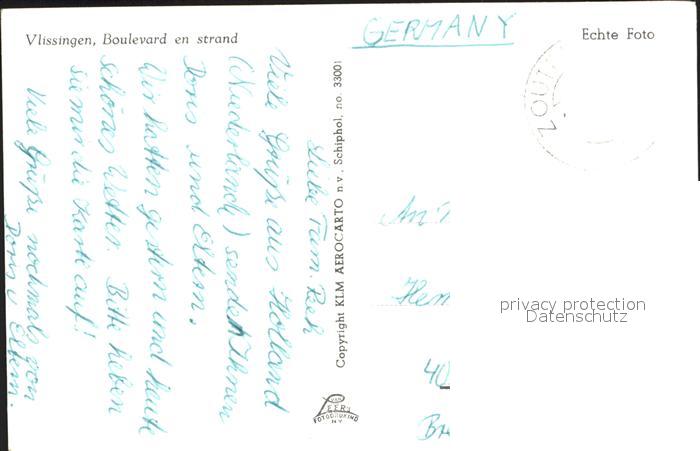 Vlissingen, Boulevard en strand
GERMANY
Echte Foto
ZOUT
Liebe Fam.
Viele Grüße aus Holland
(Niederlande) senden Ihnen
Doris und Eltern.
Wir hatten gestern und heute
schönes Wetter. Bitte heben
sie mir die Karte auf!
Viele Grüße nochmals von
Doris u. Eltern.
Copyright KLM AEROCARTO n.v., Schiphol, no. 33001
VAN
LEER'S
FOTODRUKIND
NV
An
40
privacy protection
Datenschutz